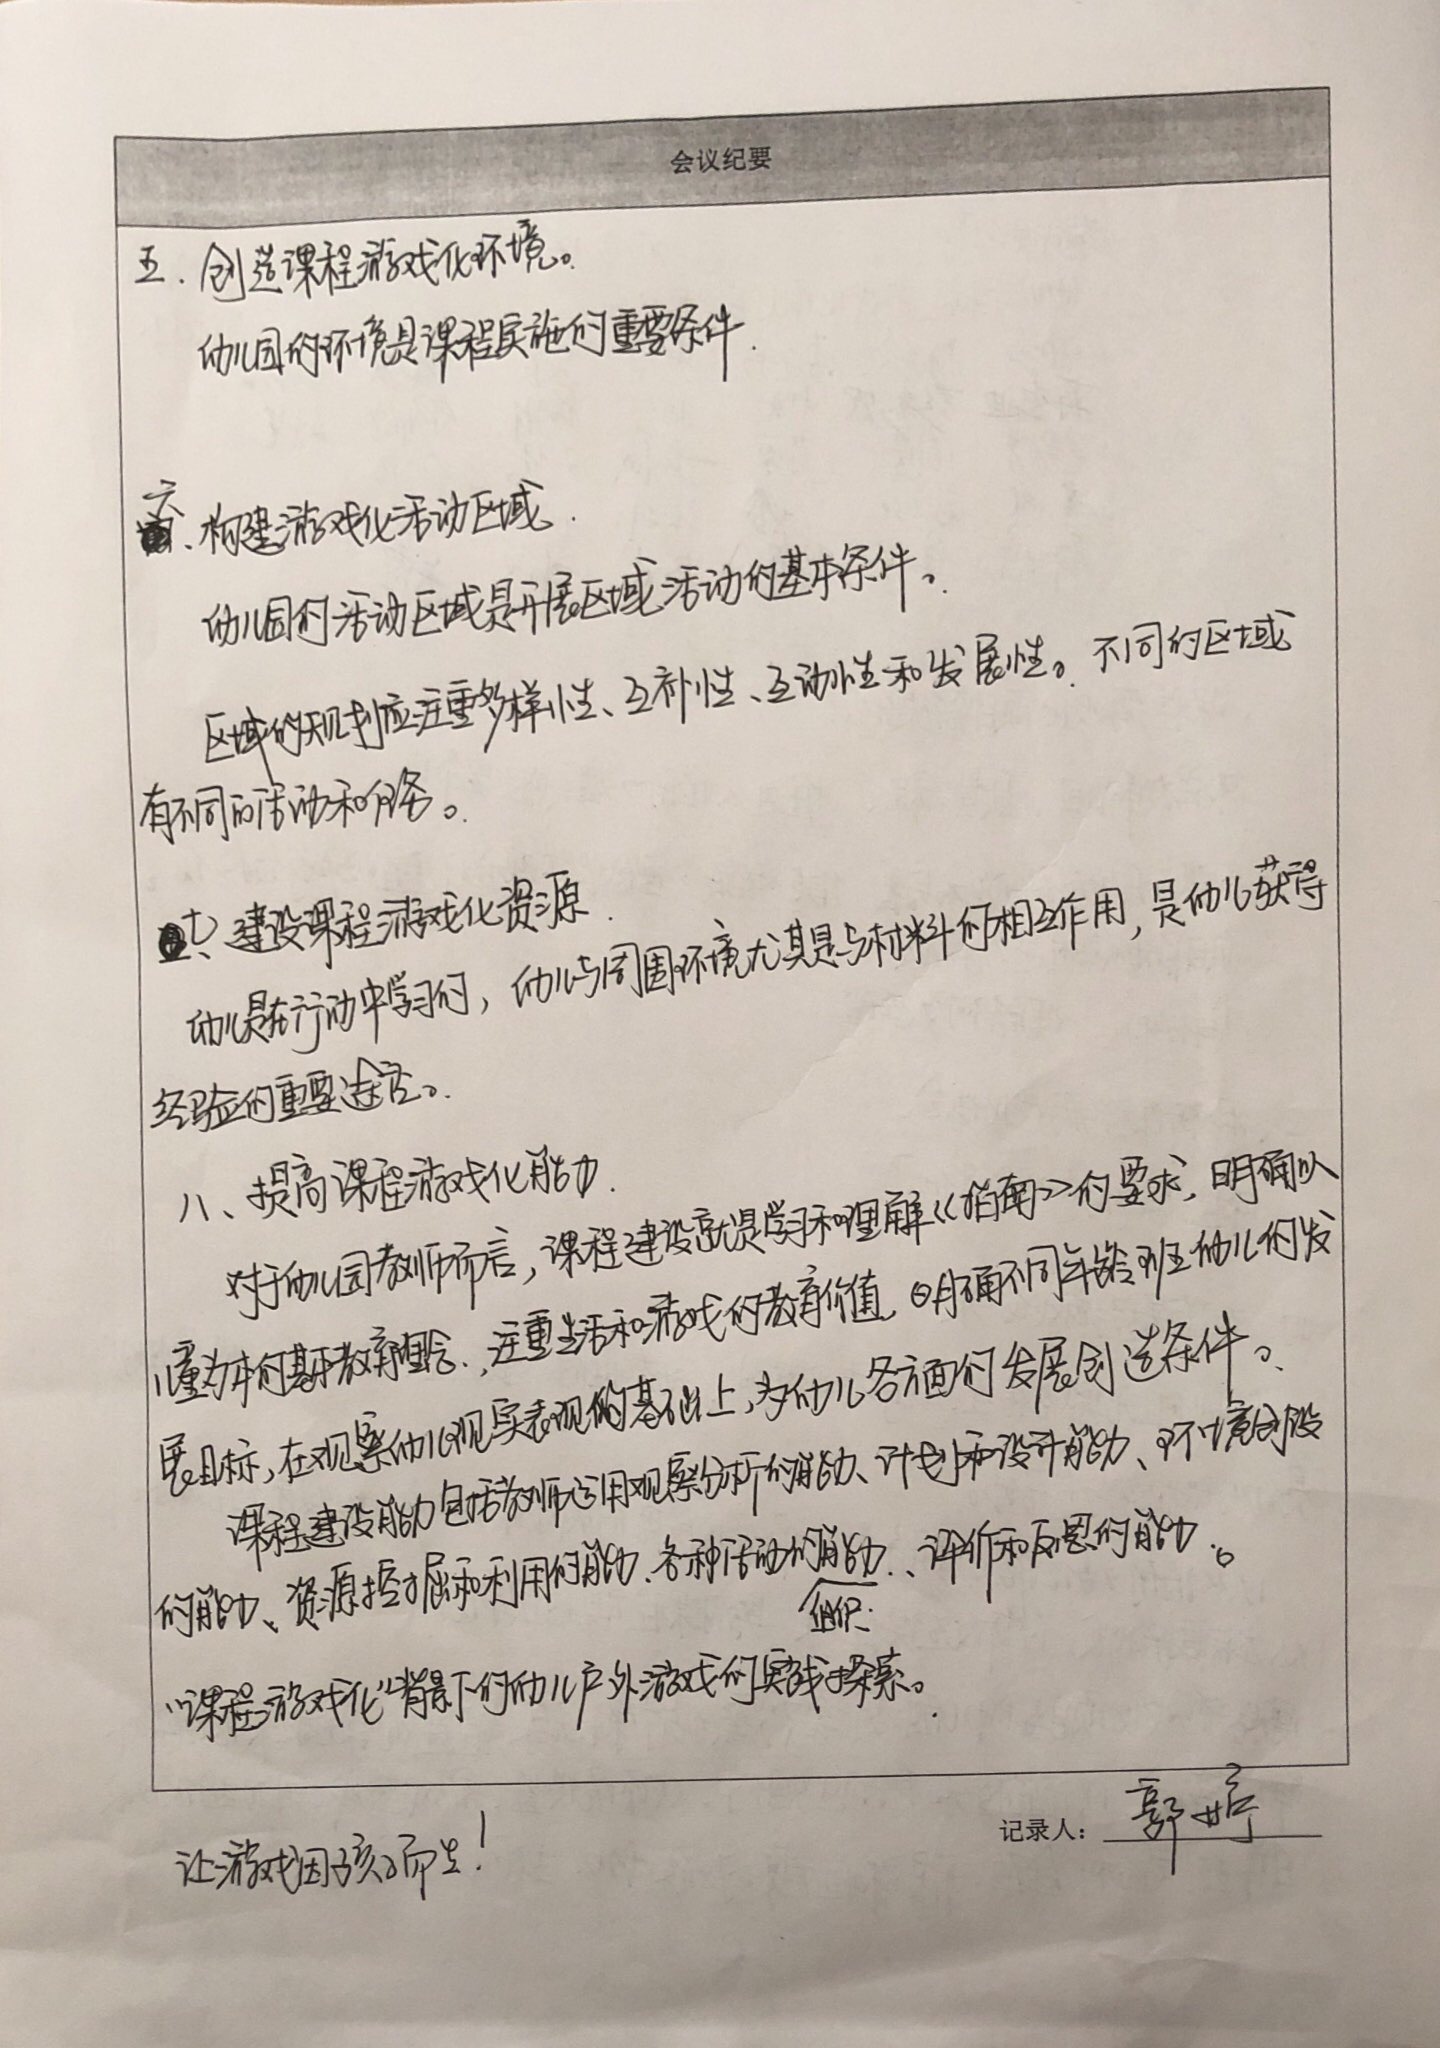 会议纪要
五.创造课程游戏化环境。
幼儿园的环境是课程实施的重要条件.
六、构建游戏化活动区域.
幼儿园的活动区域是开展区域活动的基本条件。
区域的规划应注重多样性、互补性、互动性和发展性。不同的区域
有不同的活动和任务。
七、建设课程游戏化资源.
幼儿是在行动中学习的,幼儿与周围环境尤其是与材料的相互作用,是幼儿获得
经验的重要途径。
八、提高课程游戏化能力.
对于幼儿园教师而言,课程建设就是学习和理解《指南》的要求,明确以
儿童为本的基本教育理念.,注重生活和游戏的教育价值,明确不同年龄班幼儿的发
展目标,在观察幼儿现实表现的基础上,为幼儿各方面的发展创造条件。
课程建设能力包括教师运用观察分析的能力、计划和设计能力、环境创设
的能力、资源挖掘和利用的能力、各种活动的组织能力、评价和反思的能力。
“课程游戏化”背景下的幼儿户外游戏的实践探索。
记录人:郭婷
让游戏因孩子而生!